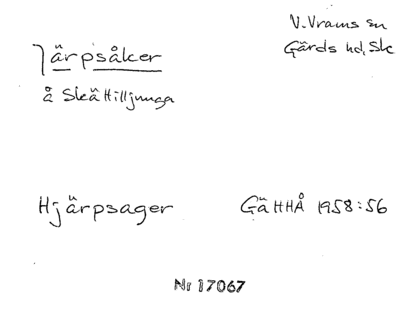 Järpsåker
å Skä Hilljunga
V. Vrams sn
Gärds hd, Sk
Hjärpsager
GäHHÅ 1958:56
Nr 17067